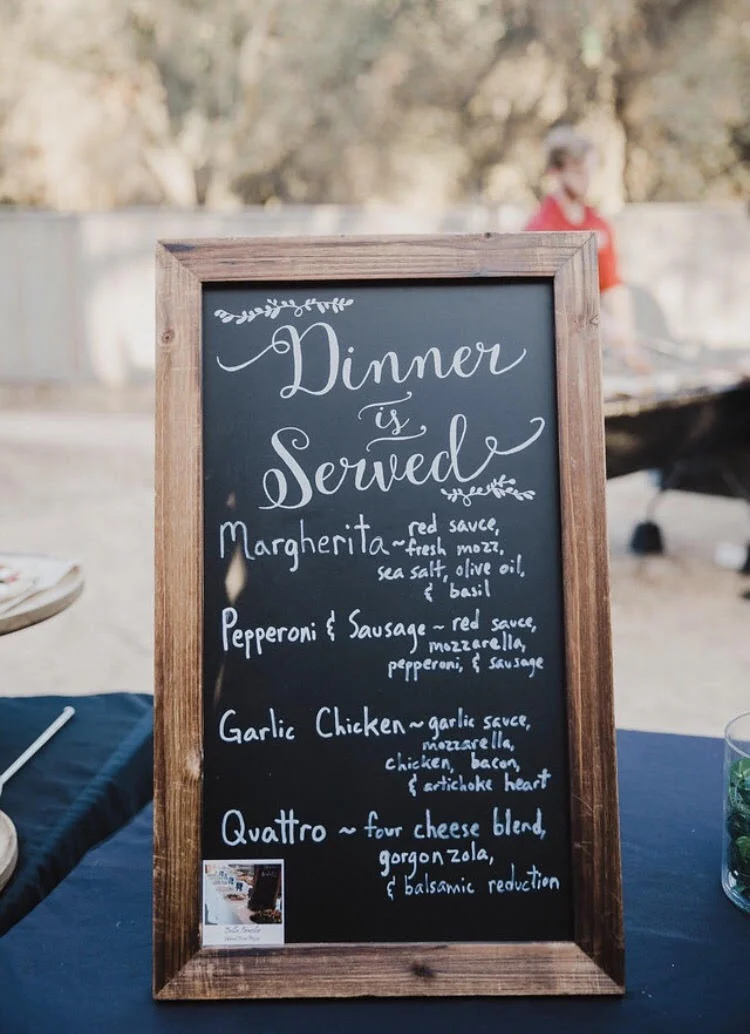 Dinner
is
Served
Margherita ~ red sauce,
fresh mozz,
sea salt, olive oil,
& basil
Pepperoni & Sausage ~ red sauce,
mozzarella,
pepperoni, & sausage
Garlic Chicken ~ garlic sauce,
mozzarella,
chicken, bacon,
& artichoke heart
Quattro ~ four cheese blend,
gorgonzola,
& balsamic reduction